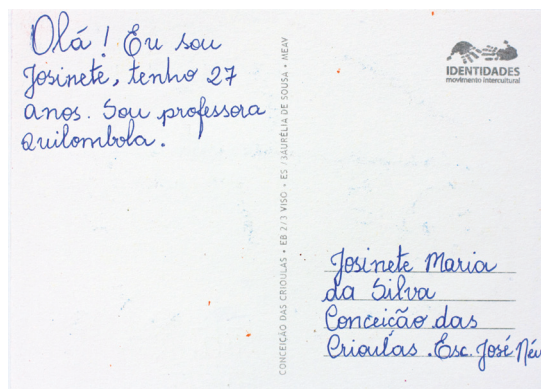 Olá! Eu sou
Josinete, tenho 27
anos. Sou professora
quilombola.
CONCEIÇÃO DAS CRIOULAS • EB 2/3 VISO • ES /3AURÉLIA DE SOUSA • MEAV
IDENTIDADES
movimento intercultural
Josinete Maria
da Silva
Conceição das
Crioulas. Esc. José Né